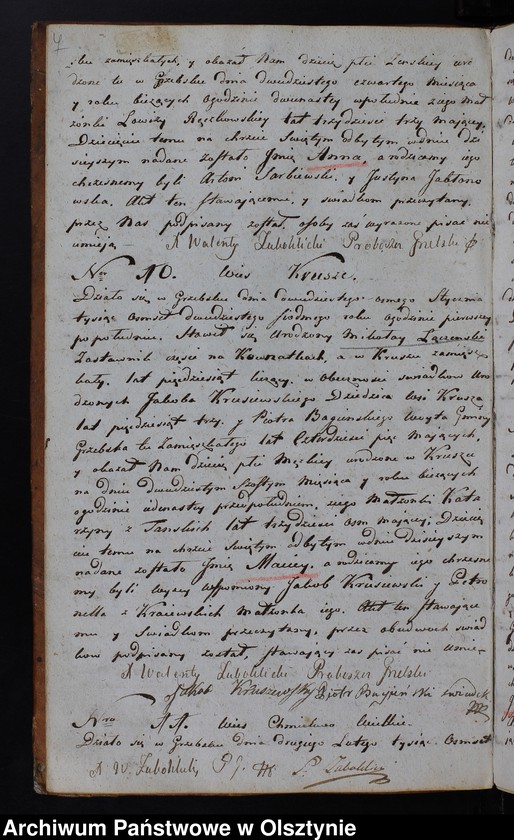 4
tu zamięszkałych, y okazał Nam dziecię płci Zenskiey uro
dzone tu w Grzebsku dnia dwudziestego czwartego miesiąca
y roku bieżących ogodzinie dwunastey wpołudnie z iego Mał
żonki Lowizy lat trzydzieści trzy maiącey,
Dziecięciu temu na chrzcie Swiętym odbytym wdniu dzi
sieyszym nadane zostało Jmię Anna, a rodzicami iego
chrzesnemi byli Antoni Sarbiewski, y Justyna Jabłono
wska, Akt ten stawaiącemu, y swiadkom przeczytany,
przez Nas podpisany został, osoby zaś wyrażone pisać nie
umieią –
X Walenty Zubolilicki Proboszcz Grzebski
Nro 10. Wies Krusze.
Działo się w Grzebsku dnia dwudziestego osmego Stycznia
tysiąc osmset dwudziestego siodmego roku ogodzinie pierwszey
popołudniu. Stawił się Urodzony Mikołay
Zastawnik częsci na Kowzatkach, a w Krusza zamięsz-
kały, lat pięćdziesiąt liczący, w obecnosci swiadkow Uro
dzonych Jakoba Krusiewskiego Dziedzica Wsi Krusza
lat pięćdziesiąt trzy, y Piotra Bagienskiego Woyta Gminy
Grzebska tu Zamięszkałego lat Czterdziesci pięć maiących,
y okazał Nam dziecię płci Męskiey urodzone w Kruszu
na dniu dwudziestym szostym miesiąca y roku bieżących
ogodzinie iedenastey przedpołudniem, z iego Małżonki Kata
rzyny z Tanskich lat trzydziesci osm maiącey; Dziecię
ciu temu na chrzcie swiętym odbytym wdniu dzisieyszym
nadane zostało Jmię Maciey, a rodzicami iego chrzesne
mi byli wyżey wspomniony Jakob Krusiewski y Petro
nella z Kraiewskich małżonka iego. Akt ten stawaiące
mu y Swiadkom przeczytany, przez obudwoch swiad
kow podpisany został, stawaiący zaś pisać nie umie –
X Walenty Zubolilicki Proboszcz Grzebski
Jakob Kruszewski Piotr Bagieński swiadek
Nro 11. Wies Chmielewo Wielkie –
Działo się w Grzebsku dnia drugiego Lutego tysiąc osmset
X W. Zubolilicki P. G.
Archiwum Państwowe w Olsztynie